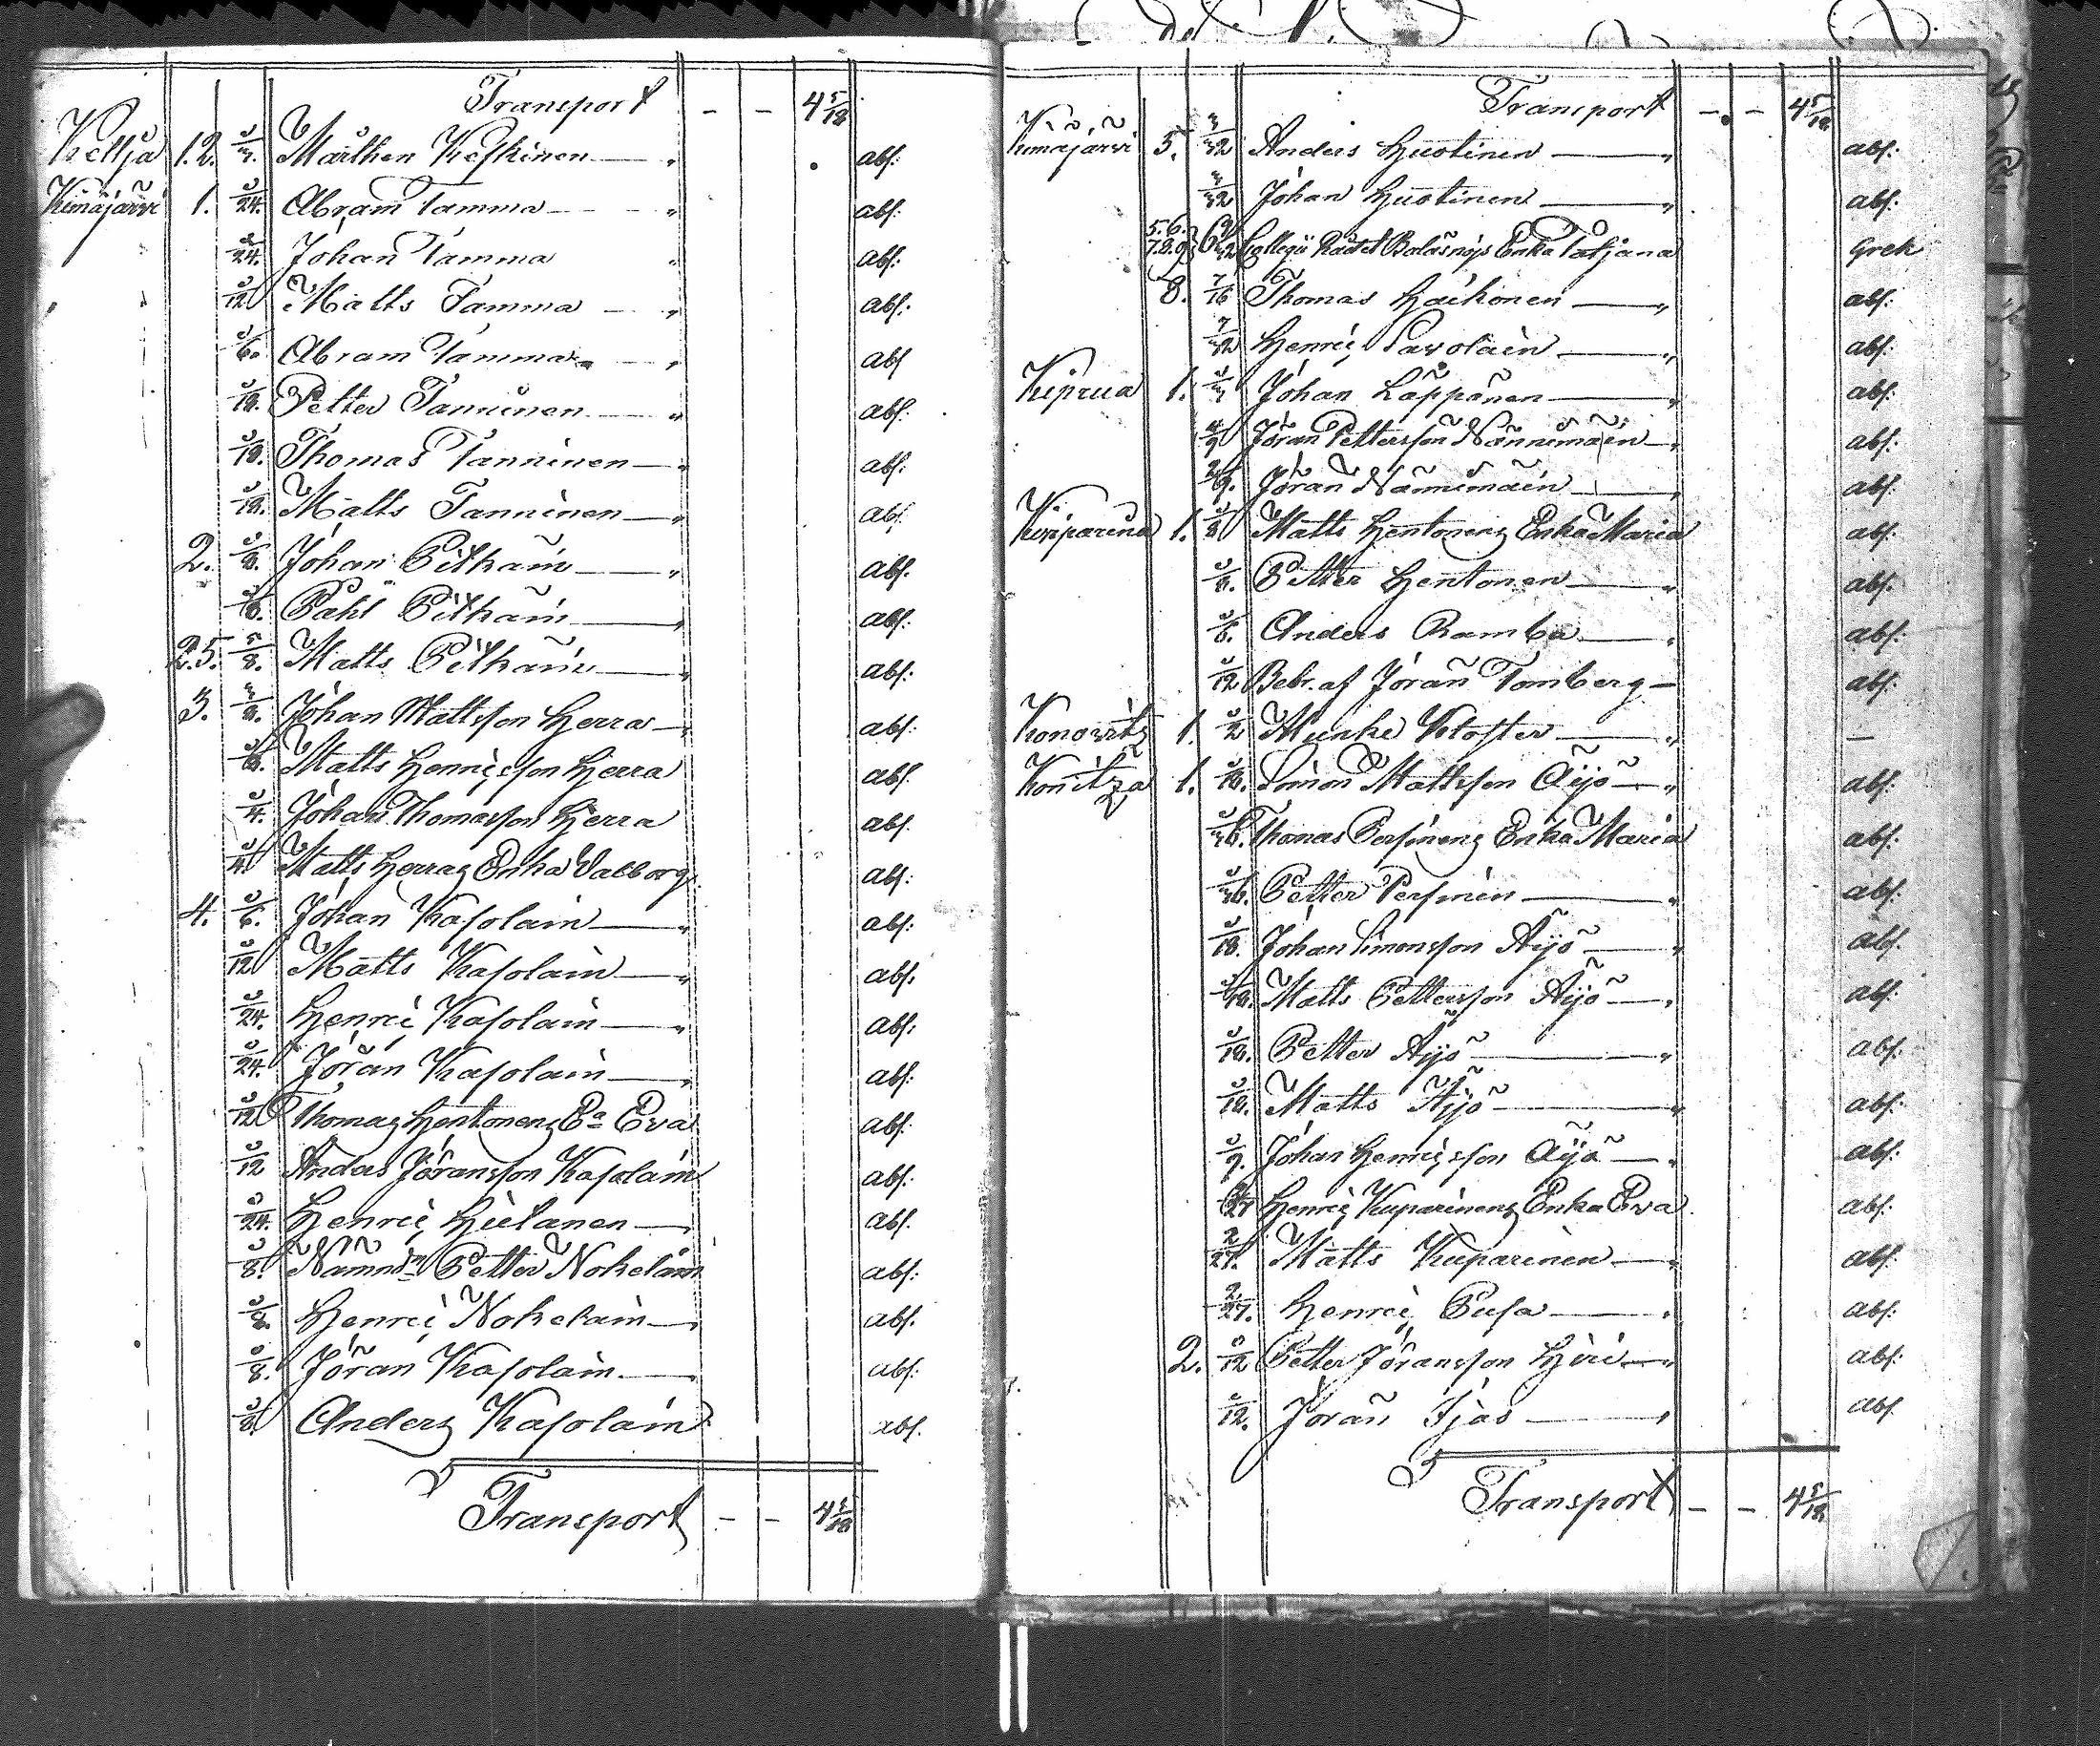 Transport - - 4 5/12
Keltja 1.2. 1/3. Marthen Keskinen abs:
Kimäjärvi 1. 1/24. Abram Tamma abs:
1/24. Johan Tamma abs:
1/12 Matts Tamma abs:
1/6. Abram Tamma abs
Petter Tanninen abs:
Thomas Tanninen abs:
Matts Tanninen abs:
2. Johan Pitkäin abs:
Påhl Pitkäin abs:
2.5. 5/8. Matts Pitkäin abs:
3. Johan Mattsson Herra abs:
Matts Henricsson Herra abs:
1/4. Johan Thomasson Herra abs:
1/4. Matts Herras Enka Valborg abs:
4. 1/6. Johan Kasolain abs:
1/12 Matts Kasolain abs:
1/24. Henric Kasolain abs:
1/24. Jöran Kasolain abs:
1/12 Thomas Hentonens Ea Eva abs:
1/12 Anders Jöransson Kasolain abs:
1/24. Henric Hietanen abs:
1/8. Nämndn Petter Nokelain abs:
1/8. Henric Nokelain abs:
1/8. Jöran Kasolain abs:
1/8 Anders Kasolain abs.
Transport - - 4 5/12
Transport - - 4 5/12
Kimäjärvi 5. 3/32 Anders Huotinen abs:
3/32 Johan Huotinen abs:
5.6. 7.8.9. Collegii Rådet Balasnojs Enka Tatjana Grek
8. 7/16 Thomas Häikonen abs:
7/32 Henric Savolain abs:
Kiprua 1. 1/3 Johan Läppänen abs:
4/9 Jöran Pettersson Nännimäin abs:
2/9. Jöran Nännimäin abs:
Koriparina 1. Matts Hentonens Enka Maria abs:
Petter Hentonen abs:
1/6. Anders Ramba abs:
1/12 Bebr. af Jöran Tomberg abs:
Konovitz 1. 1/2 Munke Kloster —
Konitza 1. Simon Mattsson Äijö abs:
Thomas Persinens Enka Maria abs:
Petter Persinen abs:
Johan Simonsson Äijö abs.
Matts Pettersson Äijö abs:
Petter Äijö abs:
Matts Äijö abs:
1/9. Johan Henricsson Äijö abs:
Henric Kuparinens Enka Eva abs:
2/27. Matts Kuparinen abs:
2/27. Henric Pusa abs:
2. 1/12 Petter Jöransson Hiiri abs:
1/12. Jöran Ijäs abs
Transport - - 4 5/12